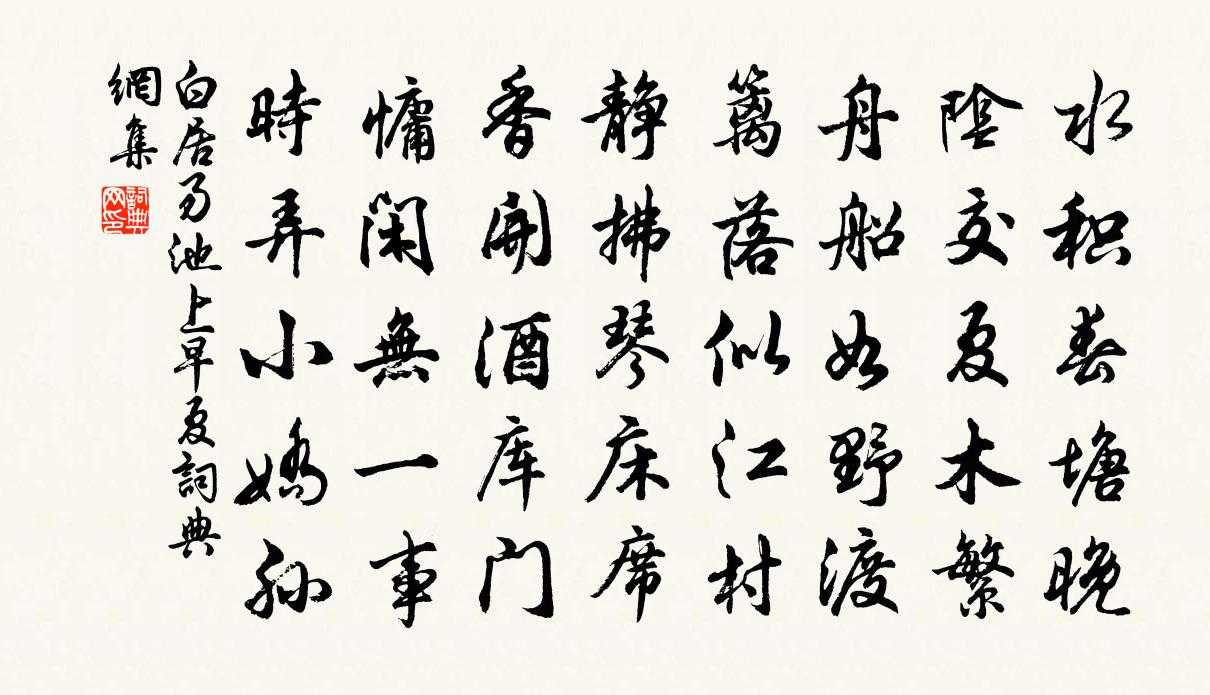 水积春塘晚
陰交夏木繁
舟船如野渡
篱落似江村
静拂琴床席
香開酒库门
慵閑無一事
時弄小嬌孙
白居易池上早夏詞典
網集
詞典
网印